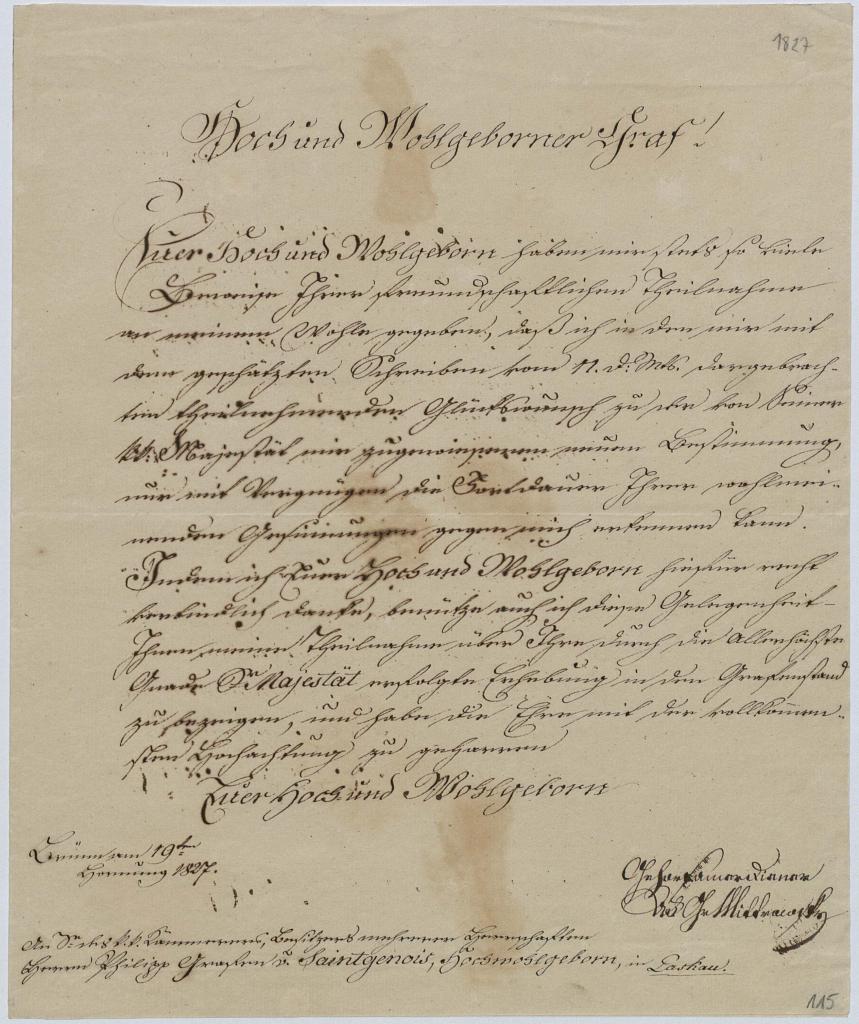 1827
Hoch und Wohlgeborner Graf!
Euer Hoch und Wohlgeborn haben mir stets so viele
Beweise Ihrer freundschaftlichen Theilnahme
an meinem Wohle gegeben, daß ich in den mir mit
dem geschätzten Schreiben vom 11. d: Mts. dargebrach-
ten theilnehmenden Glückswunsch zu der von Seiner
k: k: Majestät mir zugewiesenen neuen Bestimmung,
nur mit Vergnügen die Fortdauer Ihrer wohlmei-
nenden Gesinnungen gegen mich erkennen kann.
Indem ich Euer Hoch und Wohlgeborn hiefür recht
verbindlich danke, benütze auch ich diese Gelegenheit
Ihnen meine Theilnahme über Ihre durch die Allerhöchste
Gnade Sr Majestät erfolgte Erhebung in den Grafenstand
zu bezeigen, und habe die Ehre mit der vollkommen-
sten Hochachtung zu geharren
Euer Hoch und Wohlgeborn
Brünn am 19ten
Hornung 1827.
Gehorsamer Diener
Gr Mittrowsky
An Sr des k. k. Kämmerers, Besitzers mehrerer Herrschaften
Herrn Philipp Grafen v. Saintgenois, Hochwohlgeborn, in Paskau.
115